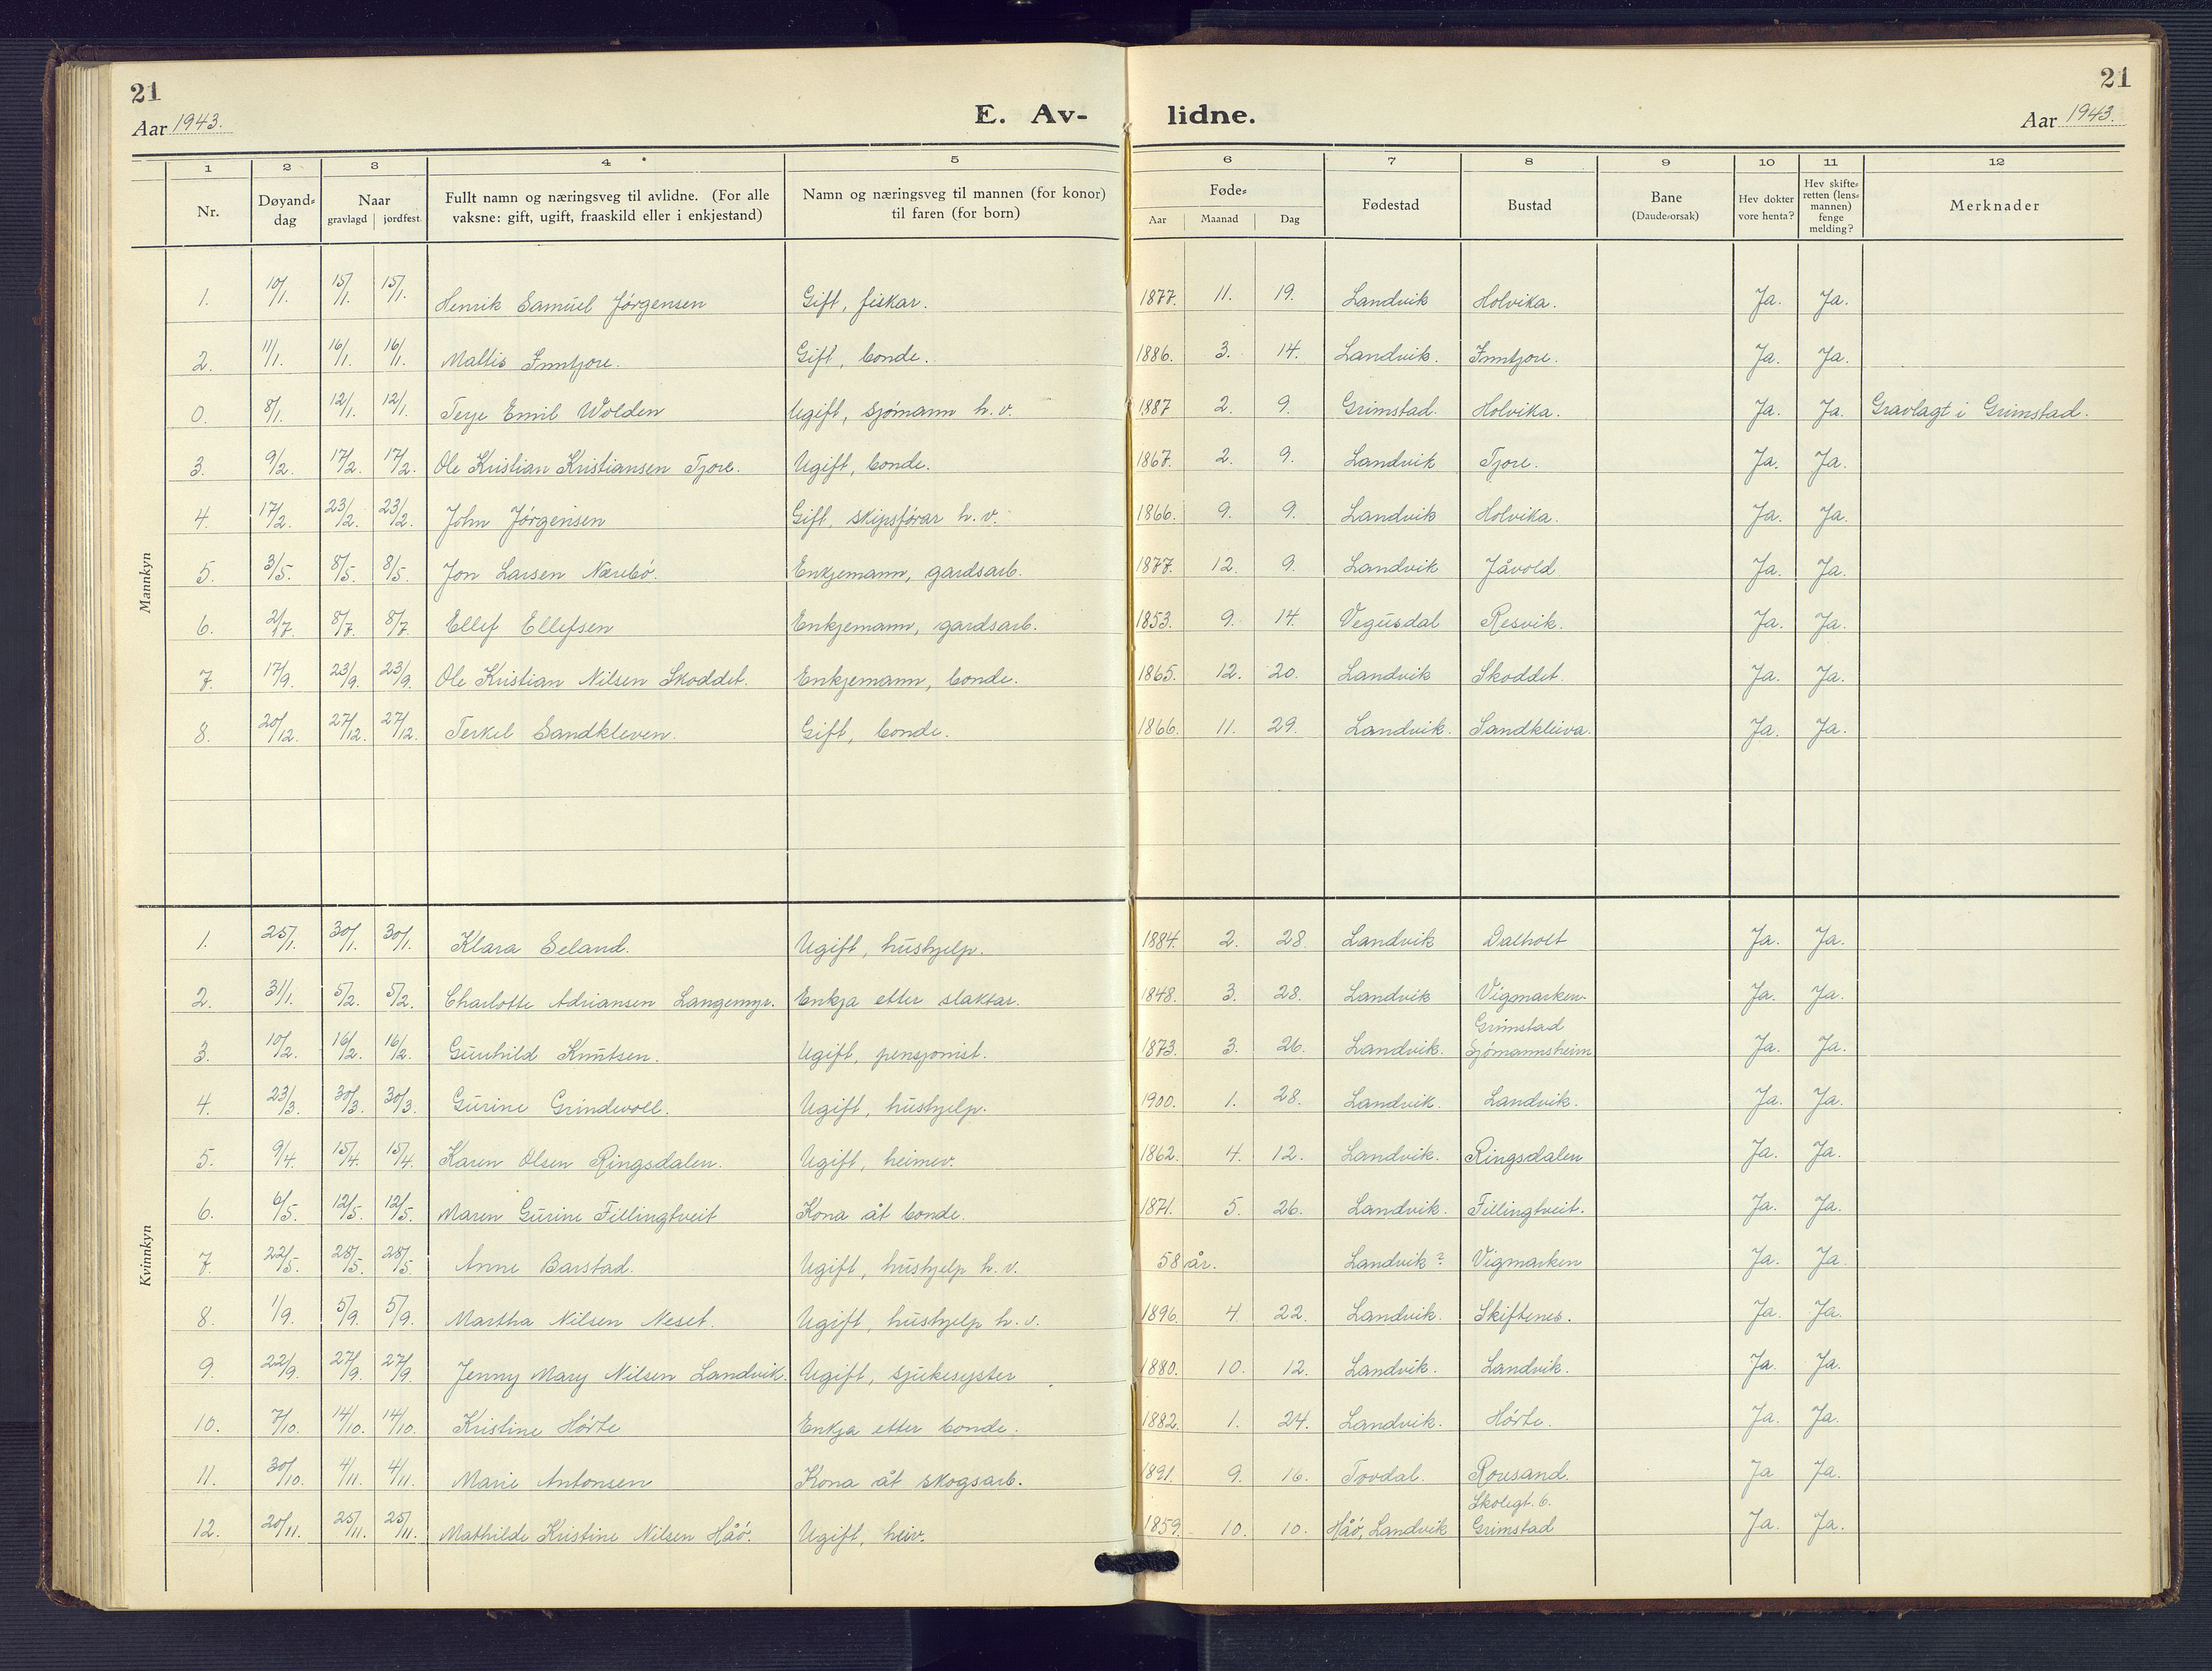 21
21
Aar 1943.
E. Av-
lidne.
Aar 1943.
1 2 3 4 5 6 7 8 9 10 11 12
Nr.
Døyand-dag
Naar
gravlagd | jordfest.
Fullt namn og næringsveg til avlidne. (For alle
vaksne: gift, ugift, fraaskild eller i enkjestand)
Namn og næringsveg til mannen (for konor)
til faren (for born)
Føde-
Aar Maanad Dag
Fødestad
Bustad
Bane
(Daude-orsak)
Hev dokter
vore henta?
Hev skifte-
retten (lens-
mannen)
fenge
melding?
Merknader
Mannkyn
1. 10/1. 15/1. 15/1. Henrik Samuel Jörgensen Gift, fiskar. 1877. 11. 19. Landvik Holvika. Ja. Ja.
2. 11/1. 16/1. 16/1. Mattis Inntjore. Gift, bonde. 1886. 3. 14. Landvik. Inntjore. Ja. Ja.
0. 8/1. 12/1. 12/1. Terje Emil Wolden Ugift, sjömann h.v. 1887 2. 9. Grimstad. Holvika. Ja. Ja. Gravlagt i Grimstad.
3. 9/2. 17/2. 17/2. Ole Kristian Kristiansen Tjore. Ugift, bonde. 1867. 2. 9. Landvik Tjore. Ja. Ja.
4. 17/2. 23/2. 23/2. John Jörgensen Gift, skipsförar h.v. 1866. 9. 9. Landvik Holvika. Ja. Ja.
5. 3/5. 8/5. 8/5. Jon Larsen Nærebö. Enkjemann, gardsarb. 1877. 12. 9. Landvik Jåvold Ja. Ja.
6. 2/7. 8/7. 8/7. Ellef Ellefsen Enkjemann, gardsarb. 1853. 9. 14. Vegusdal Resvik. Ja. Ja.
7. 17/9. 23/9. 23/9. Ole Kristian Nilsen Skoddet. Enkjemann, bonde. 1865. 12. 20. Landvik Skoddet. Ja. Ja.
8. 20/12. 27/12. 27/12. Terkel Sandkleven. Gift, bonde. 1866. 11. 29. Landvik. Sandkleiva. Ja. Ja.
Kvinnkyn
1. 25/1. 30/1. 30/1. Klara Eeland. Ugift, hushjelp. 1884. 2. 28. Landvik Dalholt Ja. Ja.
2. 31/1. 5/2. 5/2. Charlotte Adriansen Langemyr. Enkja etter slaktar. 1848. 3. 28. Landvik Vigmarken Ja. Ja.
Grimstad
3. 10/2. 16/2. 16/2. Gunhild Knutsen. Ugift, pensjonist. 1873. 3. 26. Landvik. Sjömannsheim Ja. Ja.
4. 23/3. 30/3. 30/3. Gurine Grindevoll. Ugift, hushjelp. 1900. 1. 28. Landvik. Landvik. Ja. Ja.
5. 9/4. 15/4. 15/4. Karen Olsen Ringsdalen. Ugift, heimev. 1862. 4. 12. Landvik. Ringsdalen Ja. Ja.
6. 6/5. 12/5. 12/5. Maren Gurine Fillingtveit Kona åt bonde. 1871. 5. 26. Landvik. Fillingtveit. Ja. Ja.
7. 22/5. 28/5. 28/5. Anne Barstad. Ugift, hushjelp h.v. 58 år. Landvik? Vigmarken Ja. Ja.
8. 1/9. 5/9. 5/9. Martha Nilsen Neset. Ugift, hushjelp h.v. 1896. 4 22. Landvik. Skiftenes. Ja. Ja.
9. 22/9. 27/9. 27/9. Jenny Mary Nilsen Landvik. Ugift, sjukesyster 1880. 10. 12. Landvik. Landvik. Ja. Ja.
10. 7/10. 14/10. 14/10. Kristine Hörte Enkja etter bonde. 1882. 1. 24. Landvik. Hörte. Ja. Ja.
11. 30/10. 4/11. 4/11. Marie Antonsen Kona åt skogsarb. 1891. 9. 16. Tovdal. Rousand. Ja Ja.
Skolegt. 6.
12. 20/11. 25/11. 25/11. Mathilde Kristine Nilsen Håö. Ugift, heiv. 1859. 10. 10. Håö, Landvik Grimstad Ja. Ja.